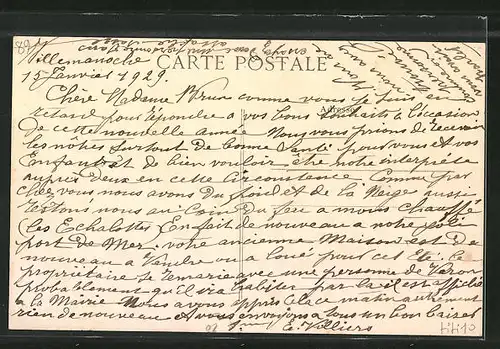 89
CARTE POSTALE
Adresse
Villemanoche
15 Janvier 1929.
Chère Madame Brux comme vous je suis en
retard pour répondre a vos bons souhaits à l'occasion
de cette nouvelle année Nous vous prions de recevoir
les nôtres surtout de bonne Santé pour vous et vos
Enfants de bien vouloir être notre interprète
auprès deux en cette circonstance Comme par
chez vous nous avons du froid et de la Neige aussi
restons nous au Coin du feu a moins chauffé
les Echalottes En fait de nouveau a notre
port de Mer, votre ancienne Maison est de
nouveau a Vendre ou a loué pour cet Eté. Le
propriétaire se remarie avec une personne de
probablement qu'il va habiter par la il est affiché
a la Mairie Nous avons appris cela ce matin autrement
rien de nouveau et vous envoyons a tous un bon baiser
E. Villiers